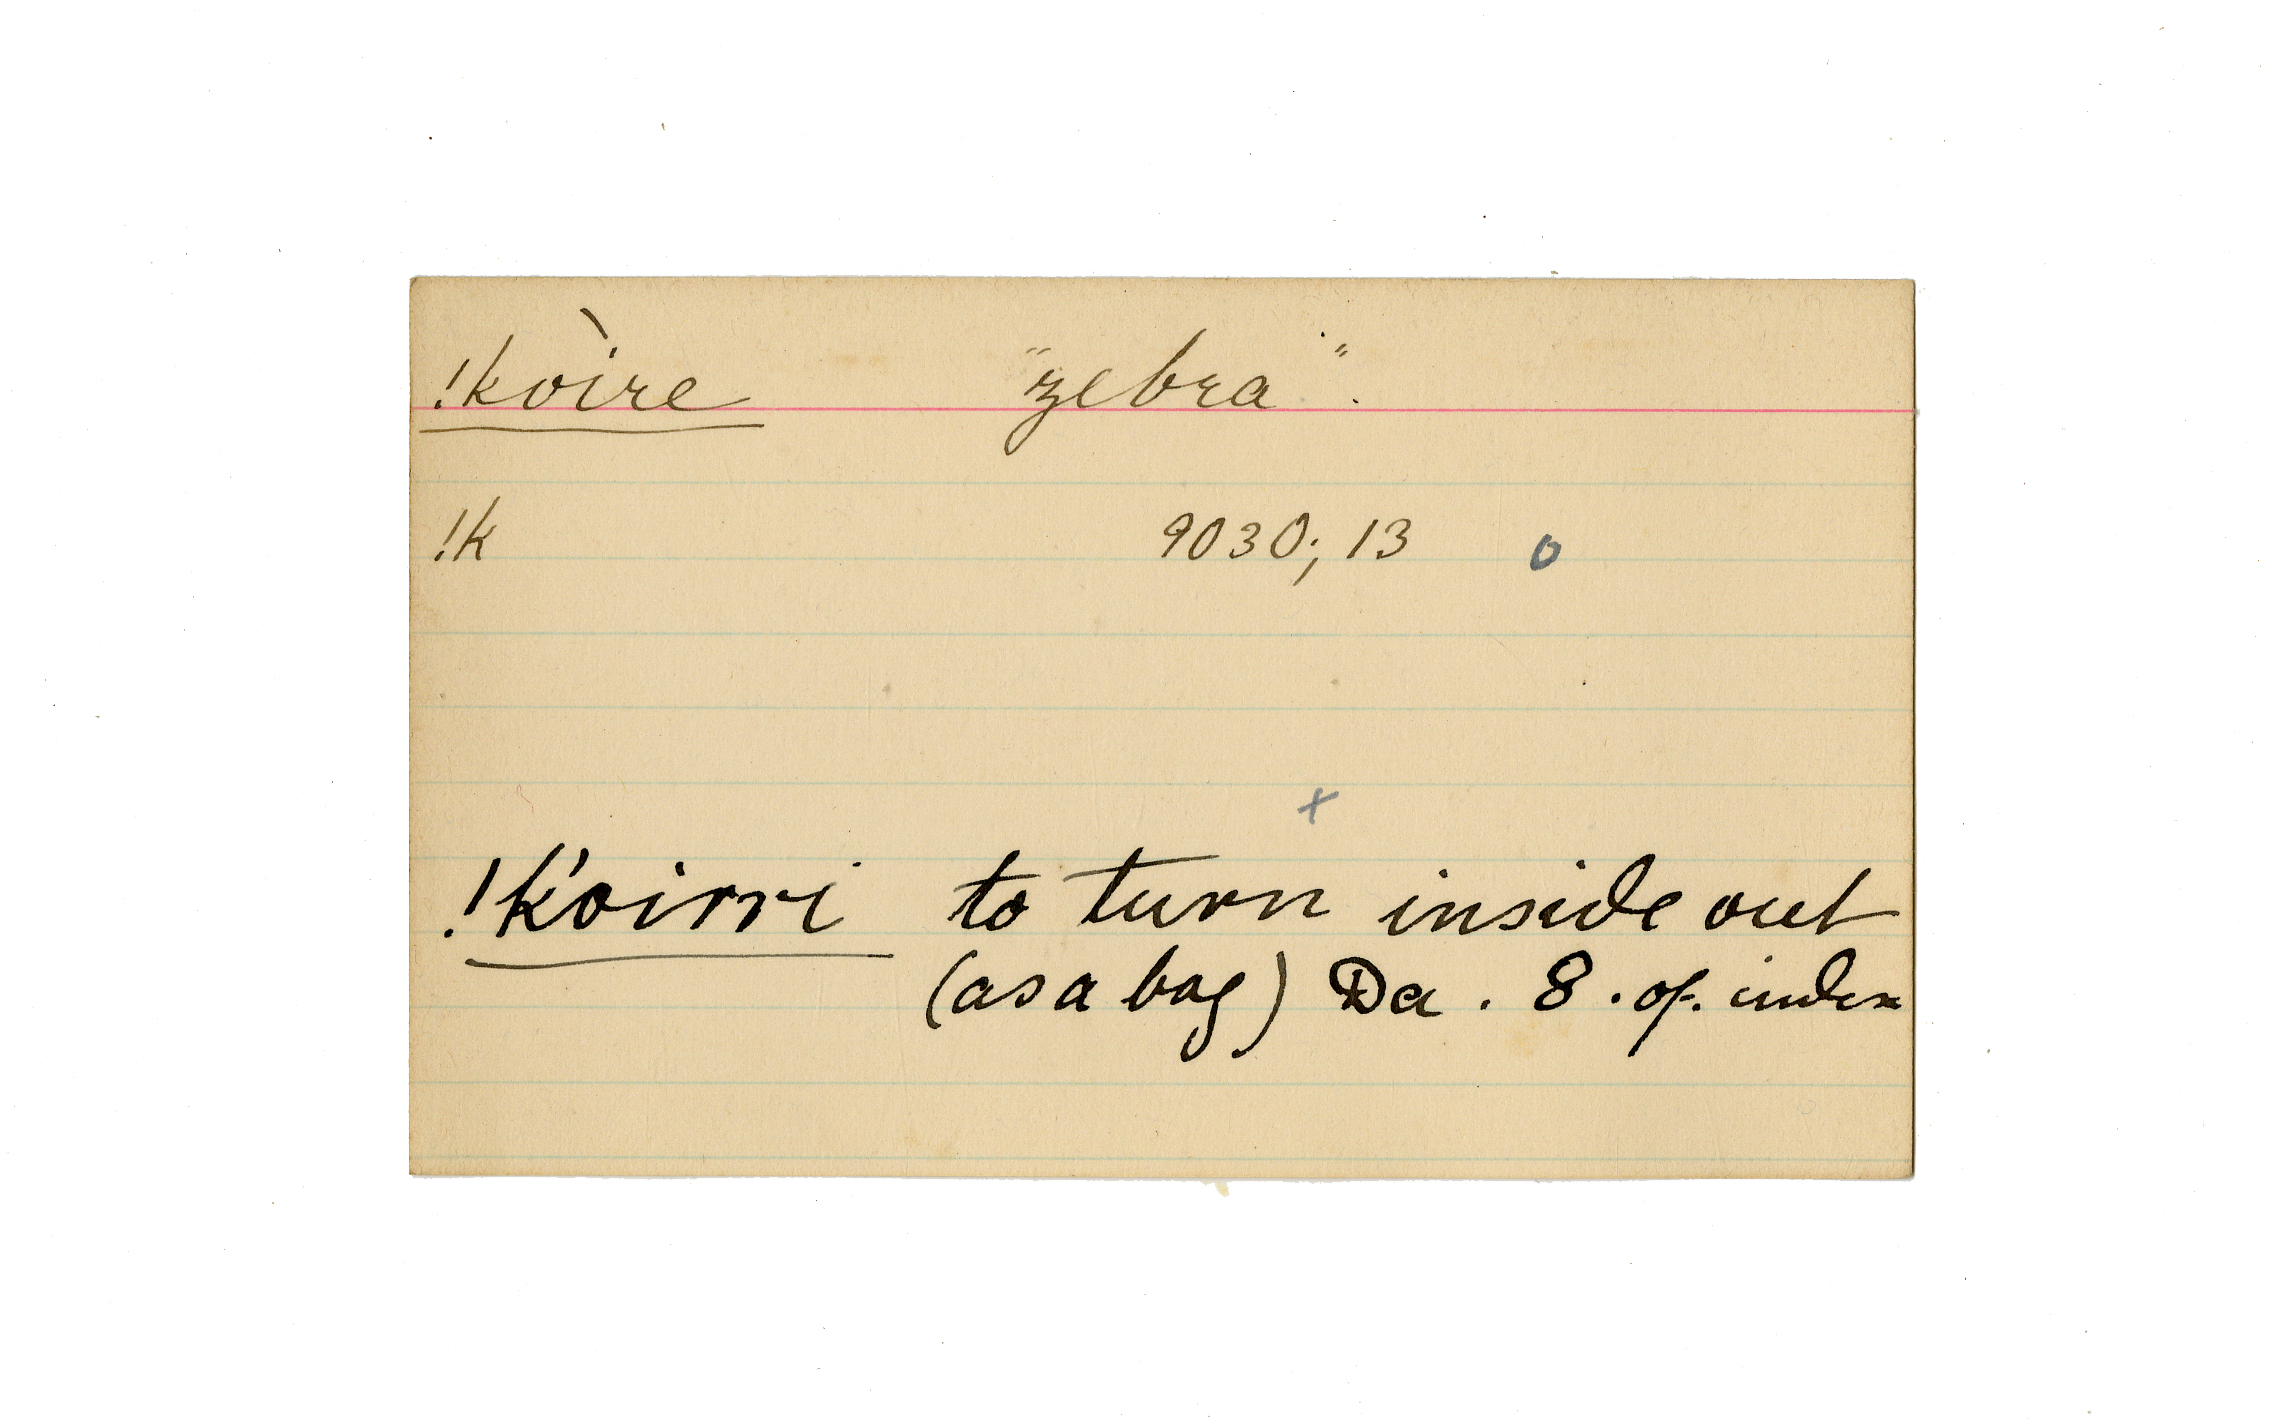 !kòire "zebra".
!k 9030; 13 o
+
!k'oirri to turn inside out
(as a bag) Da. 8. of. index